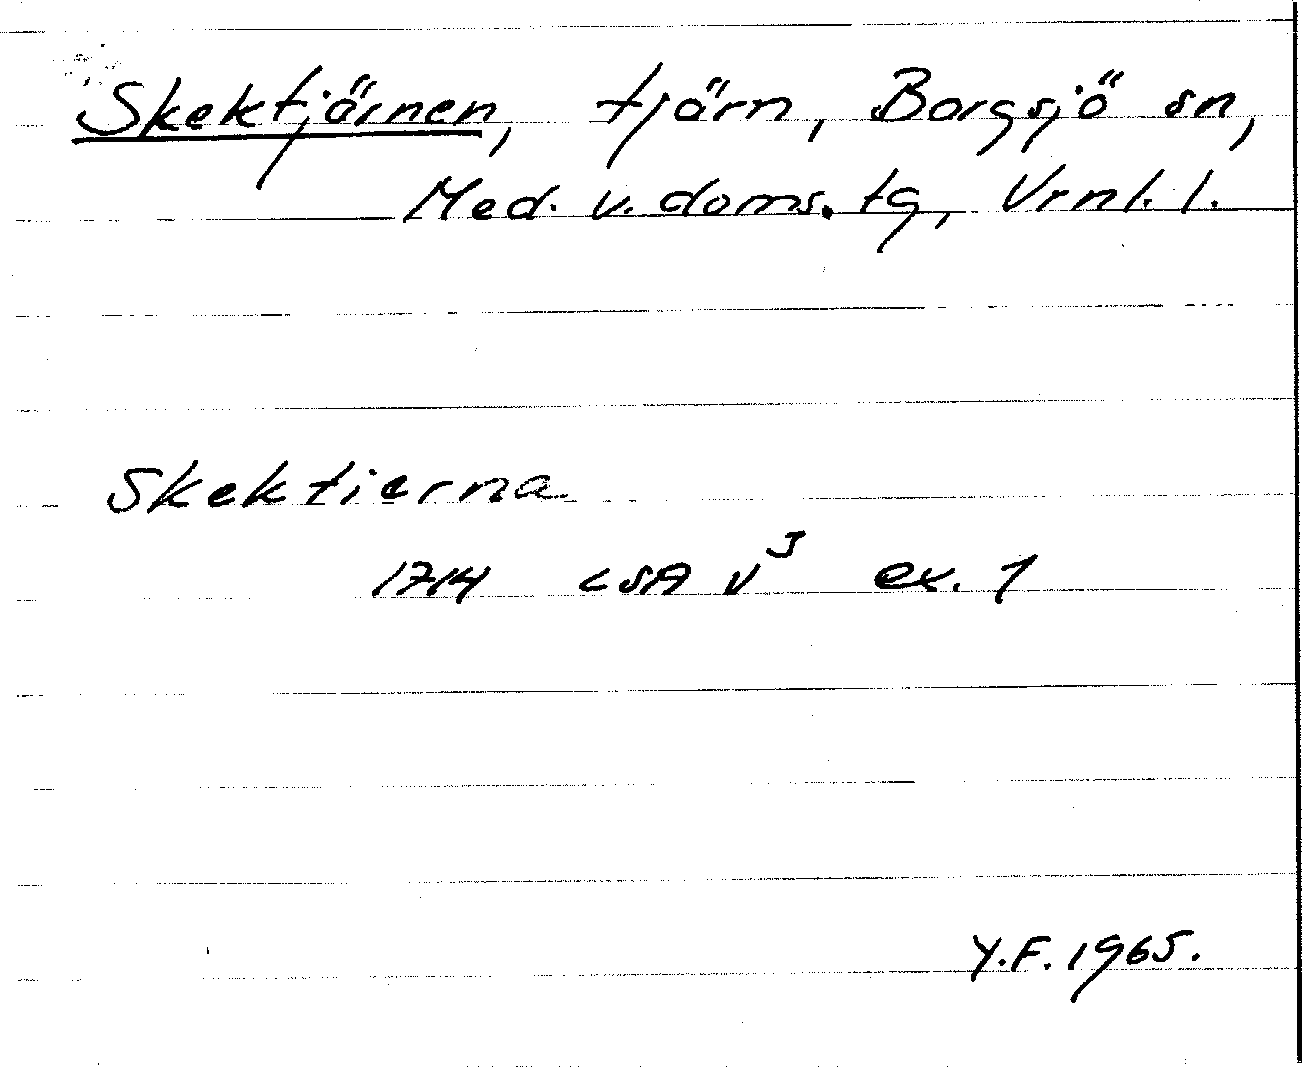 Skektjärnen, tjärn, Borgsjö sn,
Med. v. doms. tg, Vrnl. l.
Skektierna
1714 LSA V³ ex. 1
Y.F. 1965.